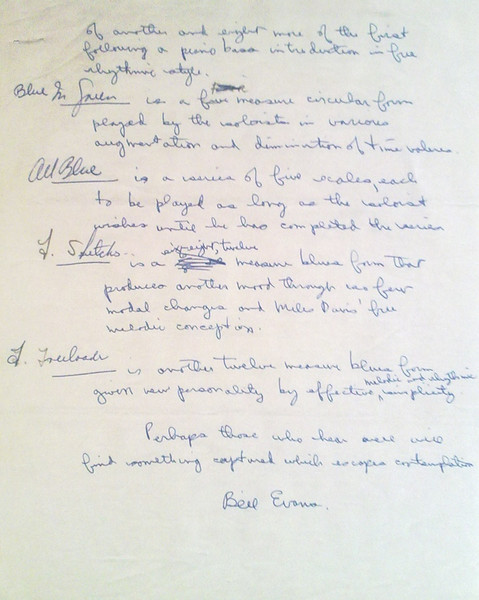 of another and eight more of the first
following a piano bass introduction in free
rhythmic style.
Blue In Green is a four measure circular form
played by the soloists in various
augmentation and diminution of time values.
All Blue is a series of five scales, each
to be played as long as the soloist
wishes until he has completed the series
F. Sketchs.. is a six eight, twelve measure blues form that
produces another mood through its few
modal changes and Miles Davis' free
melodic conception.
F. Freeloader is another twelve measure blues form
given new personality by effective, melodic and rhythmic simplicity
Perhaps those who hear well will
find something captured which escapes contemplation
Bill Evans.